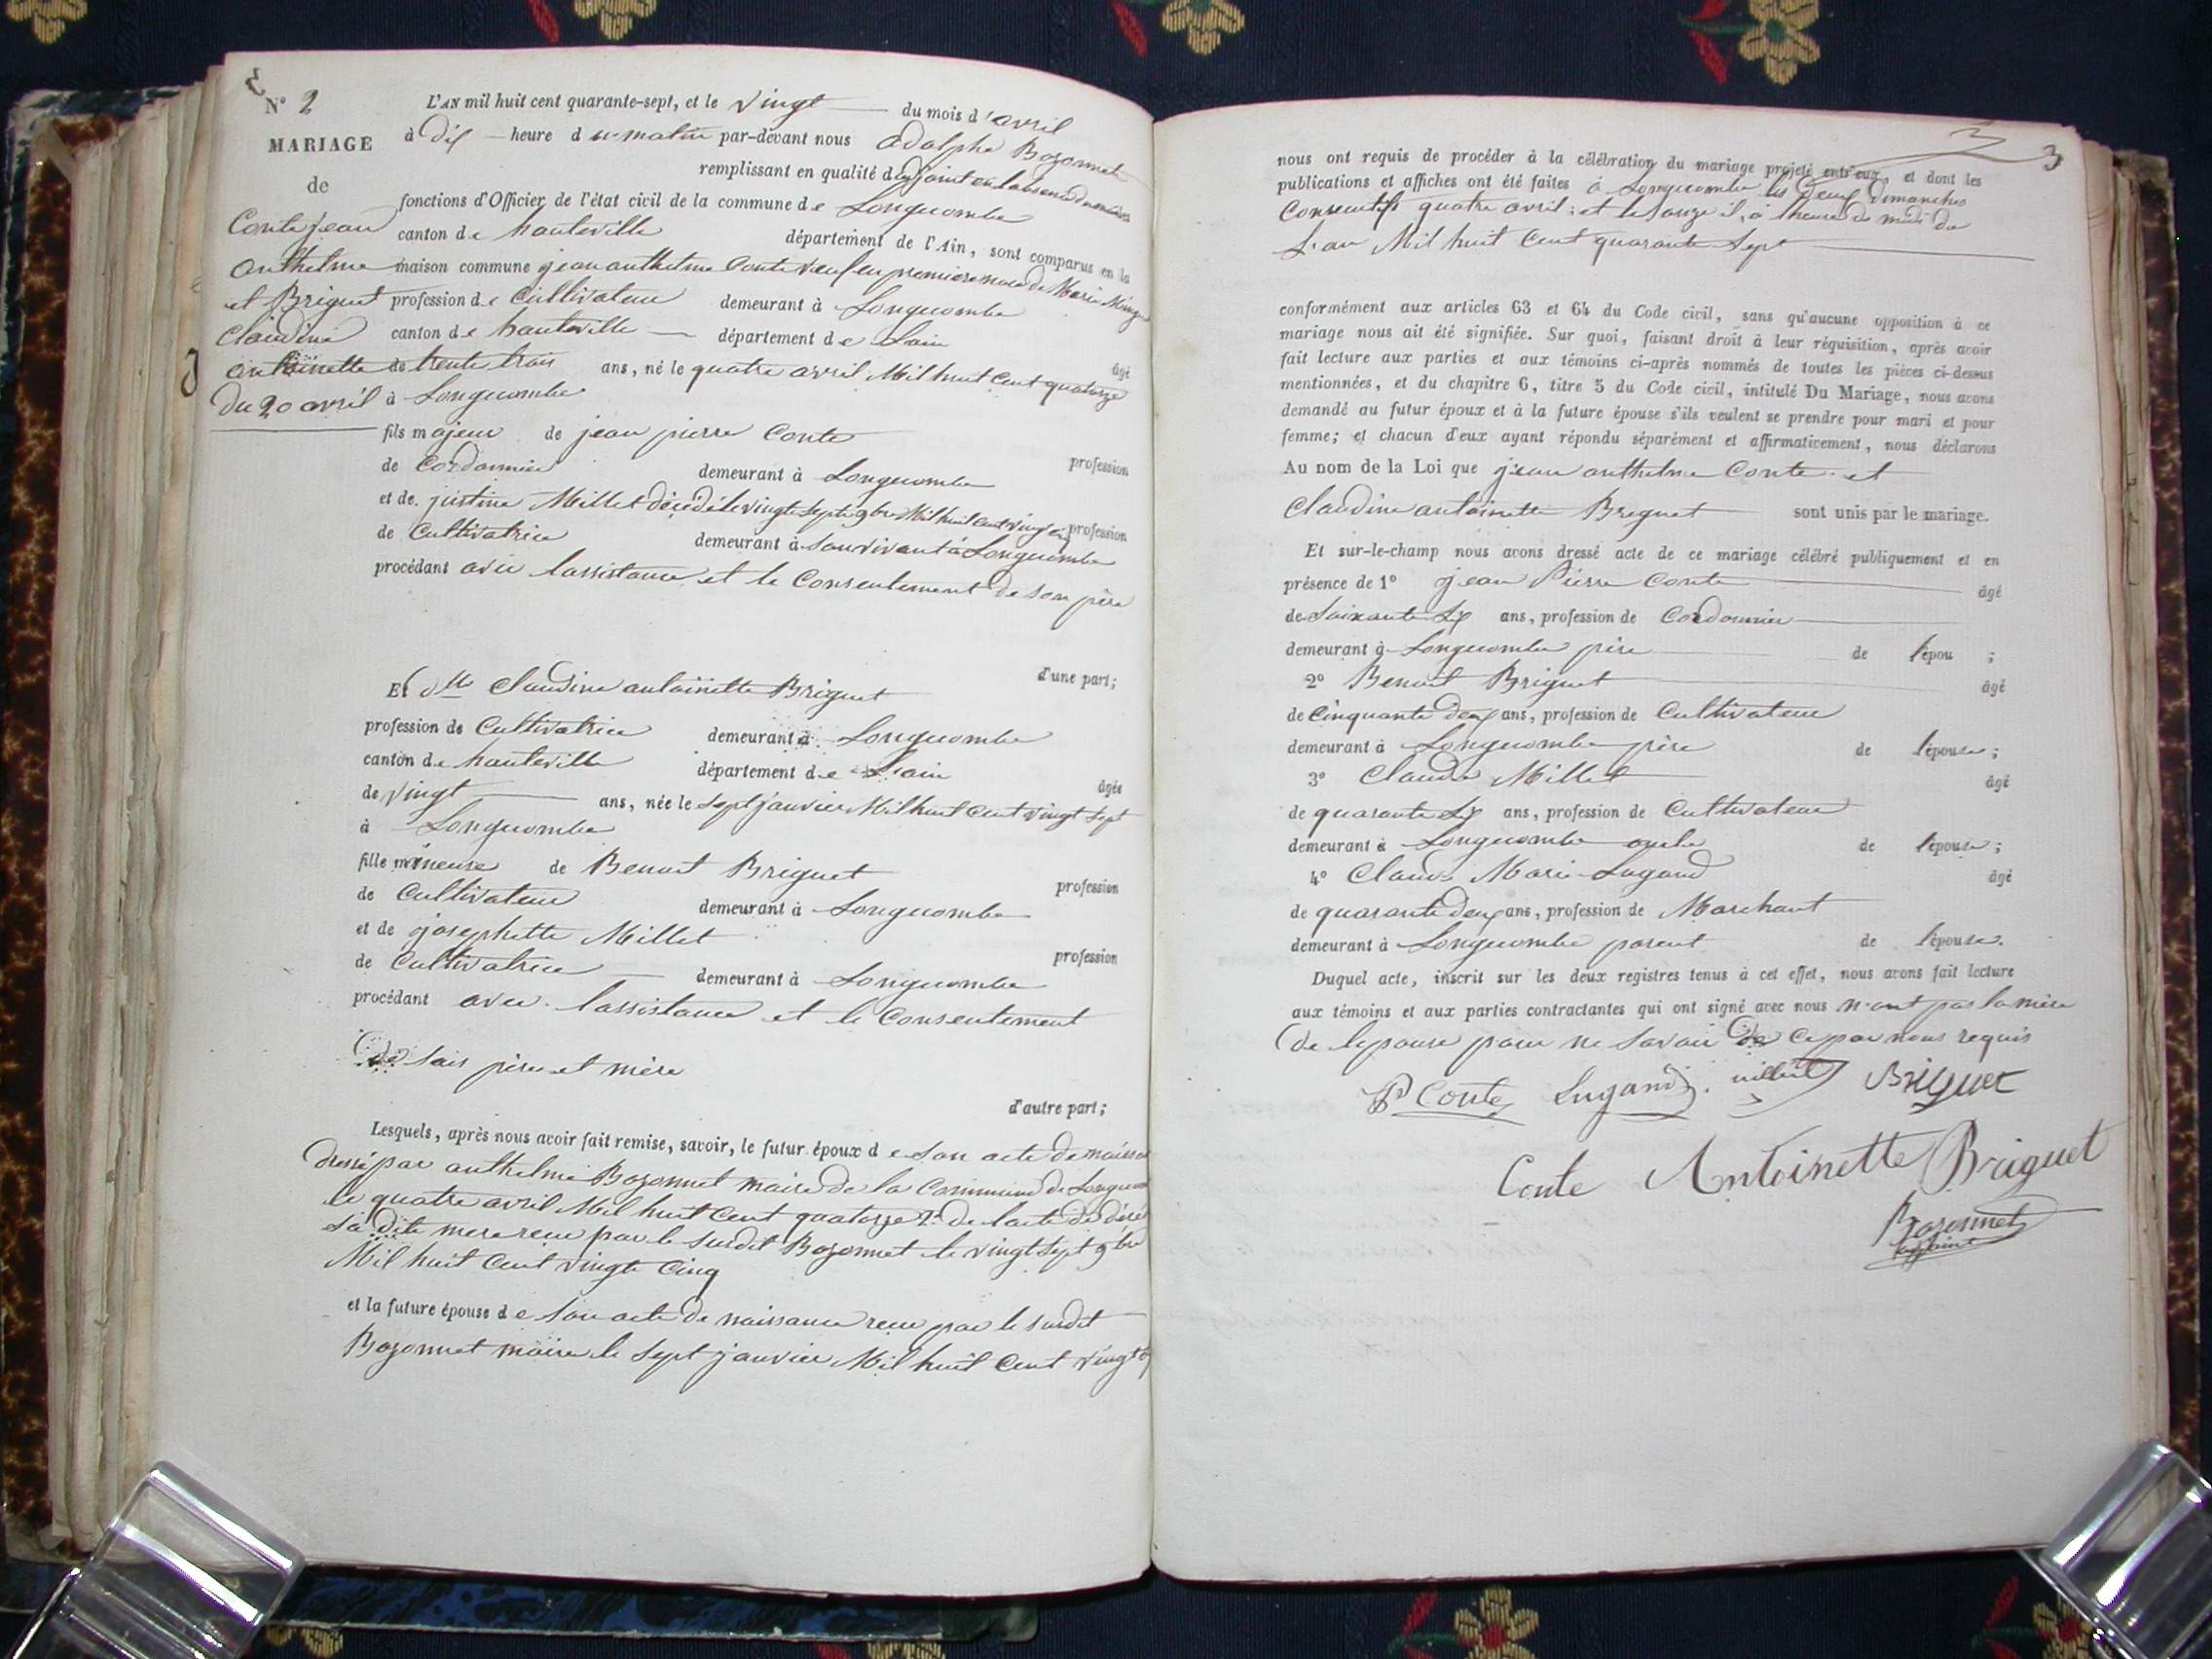 N° 2
MARIAGE
de
Conte jean
anthelme
et Briguet
Claudine
antoinette
du 20 avril
L'AN mil huit cent quarante-sept, et le vingt du mois d'avril
à dix heure du matin par-devant nous adolphe Bozonnet
remplissant en qualité d'adjoint en l'absence du maire les
fonctions d'Officier de l'état civil de la commune de Longecombe
canton de hauteville département de l'Ain, sont comparus en la
maison commune jean anthelme Conte veuf en premiere noce de Marie
profession de Cultivateur demeurant à Longecombe
canton de hauteville département de Lain
âgé
de trente trois ans, né le quatre avril Mil huit Cent quatorze
à Longecombe
fils majeur de jean pierre Conte
profession
de Cordonnier demeurant à Longecombe
et de justine Millet décédé le vingt sept 9bre Mil huit cent vingt cinq profession
de Cultivatrice demeurant à son vivant à Longecombe
procédant avec lassistance et le Consentement de son père
d'une part;
Et dlle Claudine antoinette Briguet
profession de Cultivatrice demeurant à Longecombe
canton de hauteville département de Lain
âgée
de vingt ans, née le sept janvier Mil huit Cent vingt sept
à Longecombe
fille mineure de Benoit Briguet
profession
de Cultivateur demeurant à Longecombe
et de josephette Millet
profession
de Cultivatrice demeurant à Longecombe
procédant avec lassistance et le Consentement
de sais père et mère
d'autre part;
Lesquels, après nous avoir fait remise, savoir, le futur époux de son acte de naissa
dressé par anthelme Bozonnet maire de la Commune de Longecom
le quatre avril Mil huit Cent quatorze 2° de lacte de décé
sa dite mere recu par le susdit Bozonnet le vingt sept 9bre
Mil huit Cent vingt Cinq
et la future épouse de son acte de naissance recu par le susdit
Bozonnet maire le sept janvier Mil huit Cent vingt
3
nous ont requis de procéder à la célébration du mariage projeté entr'eux, et dont les
publications et affiches ont été faites à Longecombe les deux dimanches
Consecutifs quatre avril et le onze à heure de midi de
L'an Mil huit Cent quarante Sept
conformément aux articles 63 et 64 du Code civil, sans qu'aucune opposition à ce
mariage nous ait été signifiée. Sur quoi, faisant droit à leur réquisition, après avoir
fait lecture aux parties et aux témoins ci-après nommés de toutes les pièces ci-dessus
mentionnées, et du chapitre 6, titre 5 du Code civil, intitulé Du Mariage, nous avons
demandé au futur époux et à la future épouse s'ils veulent se prendre pour mari et pour
femme; et chacun d'eux ayant répondu séparément et affirmativement, nous déclarons
Au nom de la Loi que jean anthelme Conte et
Claudine antoinette Briguet sont unis par le mariage.
Et sur-le-champ nous avons dressé acte de ce mariage célébré publiquement et en
présence de 1° jean Pierre Conte âgé
de Soixante Six ans, profession de Cordonnier
demeurant à Longecombe père de l'épou ;
2° Benoit Briguet âgé
de Cinquante deux ans, profession de Cultivateur
demeurant à Longecombe père de l'épouse;
3° Claude Millet âgé
de quarante Six ans, profession de Cultivateur
demeurant à Longecombe oncle de l'épouse;
4° Claude Marie Lugand âgé
de quarante deux ans, profession de Marchant
demeurant à Longecombe parent de l'épouse.
Duquel acte, inscrit sur les deux registres tenus à cet effet, nous avons fait lecture
aux témoins et aux parties contractantes qui ont signé avec nous non pas la mère
de lepouse pour ne savoir de ce par nous requis
JP Conte Lugand millet BRIGUET
Conte Antoinette Briguet
Bozonnet
adjoint